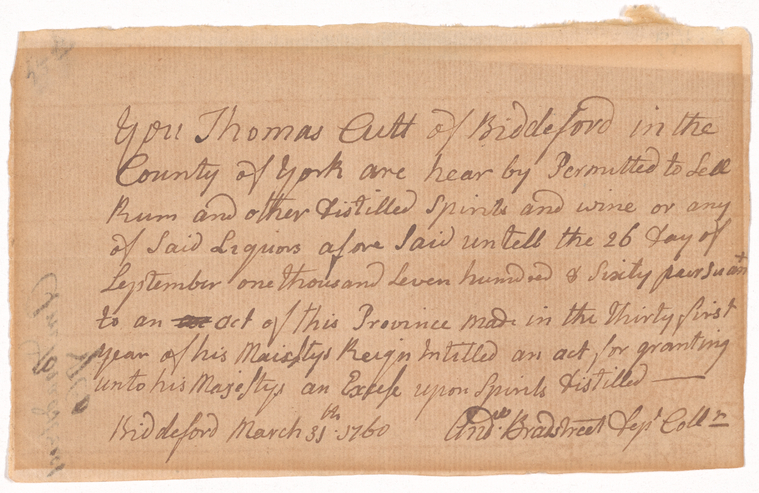 You Thomas Cutt of Biddeford in the
County of York are hear by Permitted to Sell
Rum and other distilled Spirits and wine or any
of Said Liquors afore Said untell the 26 Day of
September one thousand Seven hundred & Sixty persuant
to an act of this Province made in the Thirty first
year of his Maisstys Reign Intitled an act for granting
unto his Majestys an Excise upon Spirits distilled —
Biddeford March 31th. 1760 Andw. Bradstreet Dept Collr